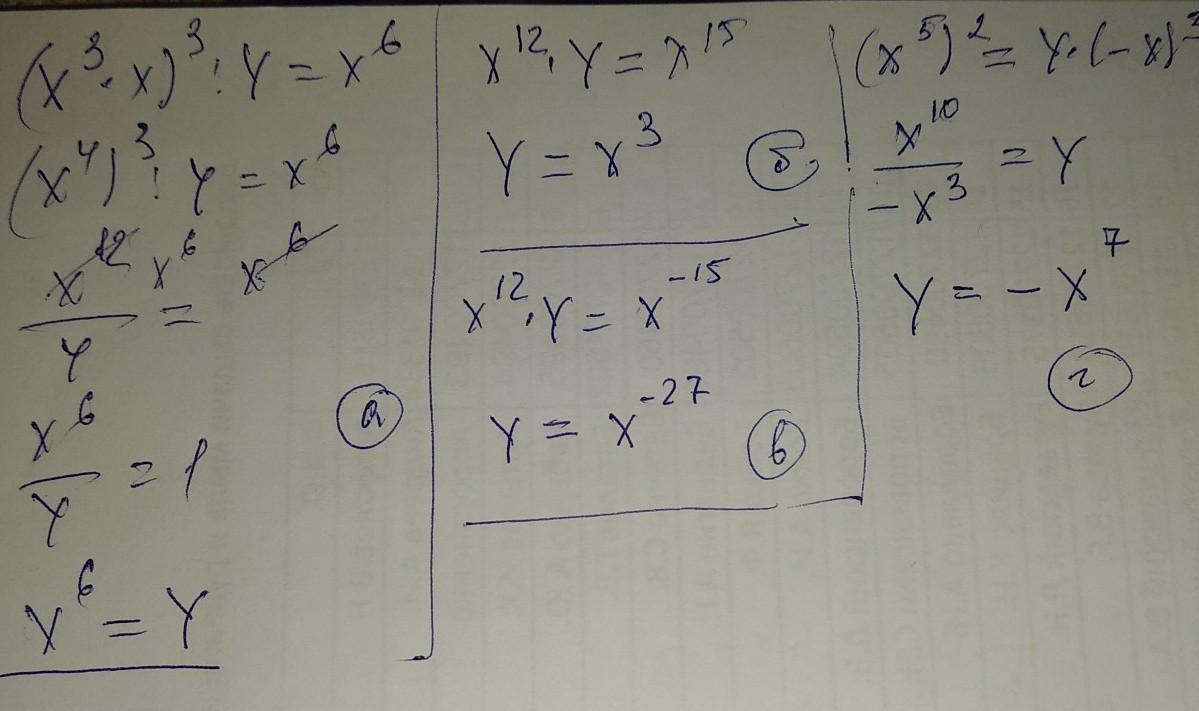 (x³·x)³ : y = x⁶
(x⁴)³ : y = x⁶
x¹² x⁶ x⁶
y =
x⁶
y = 1
x⁶ = y
а
x¹²·y = x¹⁵
y = x³ б
x¹²·y = x⁻¹⁵
y = x⁻²⁷ в
(x⁵)² = y·(-x)³
x¹⁰
-x³ = y
y = -x⁷
г